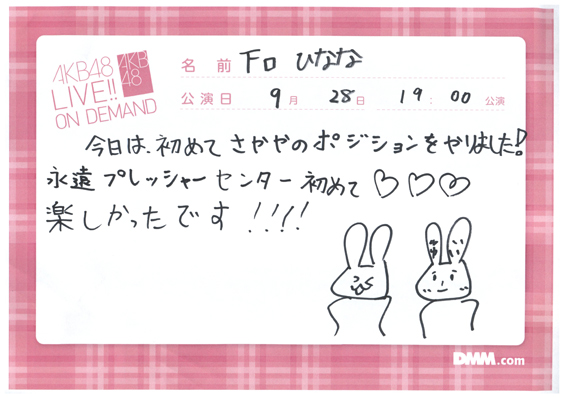 AKB48
LIVE!!
ON DEMAND
AKB
48
名 前 下口 ひなな
公演日 9月 28日 19:00 公演
今日は、初めてさややのポジションをやりました!
永遠プレッシャーセンター初めて♡♡♡
楽しかったです!!!!
DMM.com